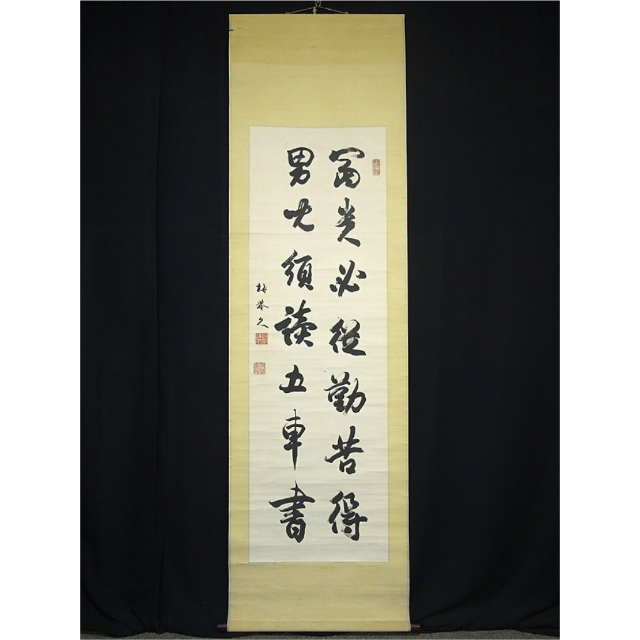 富貴必從勤苦得
男児須讀五車書